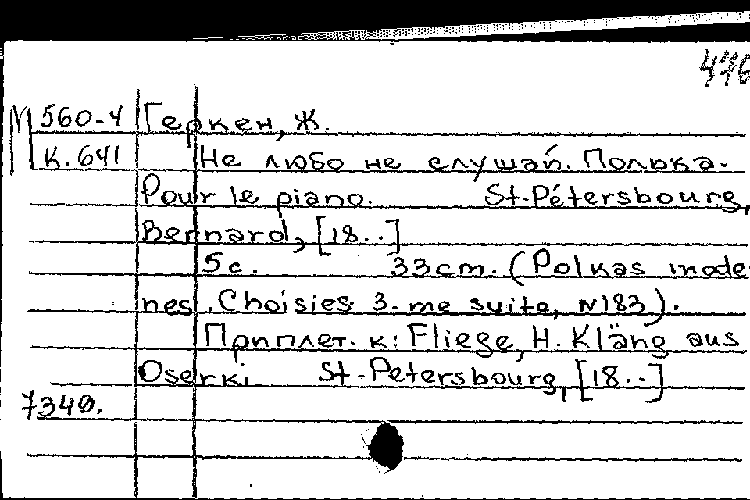 476
М 560-4 Геркен, Ж.
К. 641 Не любо не слушай. Полька.
Pour le piano. St-Pétersbourg,
Bernard, [18..]
5 с. 33 cm. (Polkas mode
nes. Choisies 3-me suite, N183).
Приплет. к: Fliege, H. Kläng aus
Oserki. St-Petersbourg, [18..]
7340.